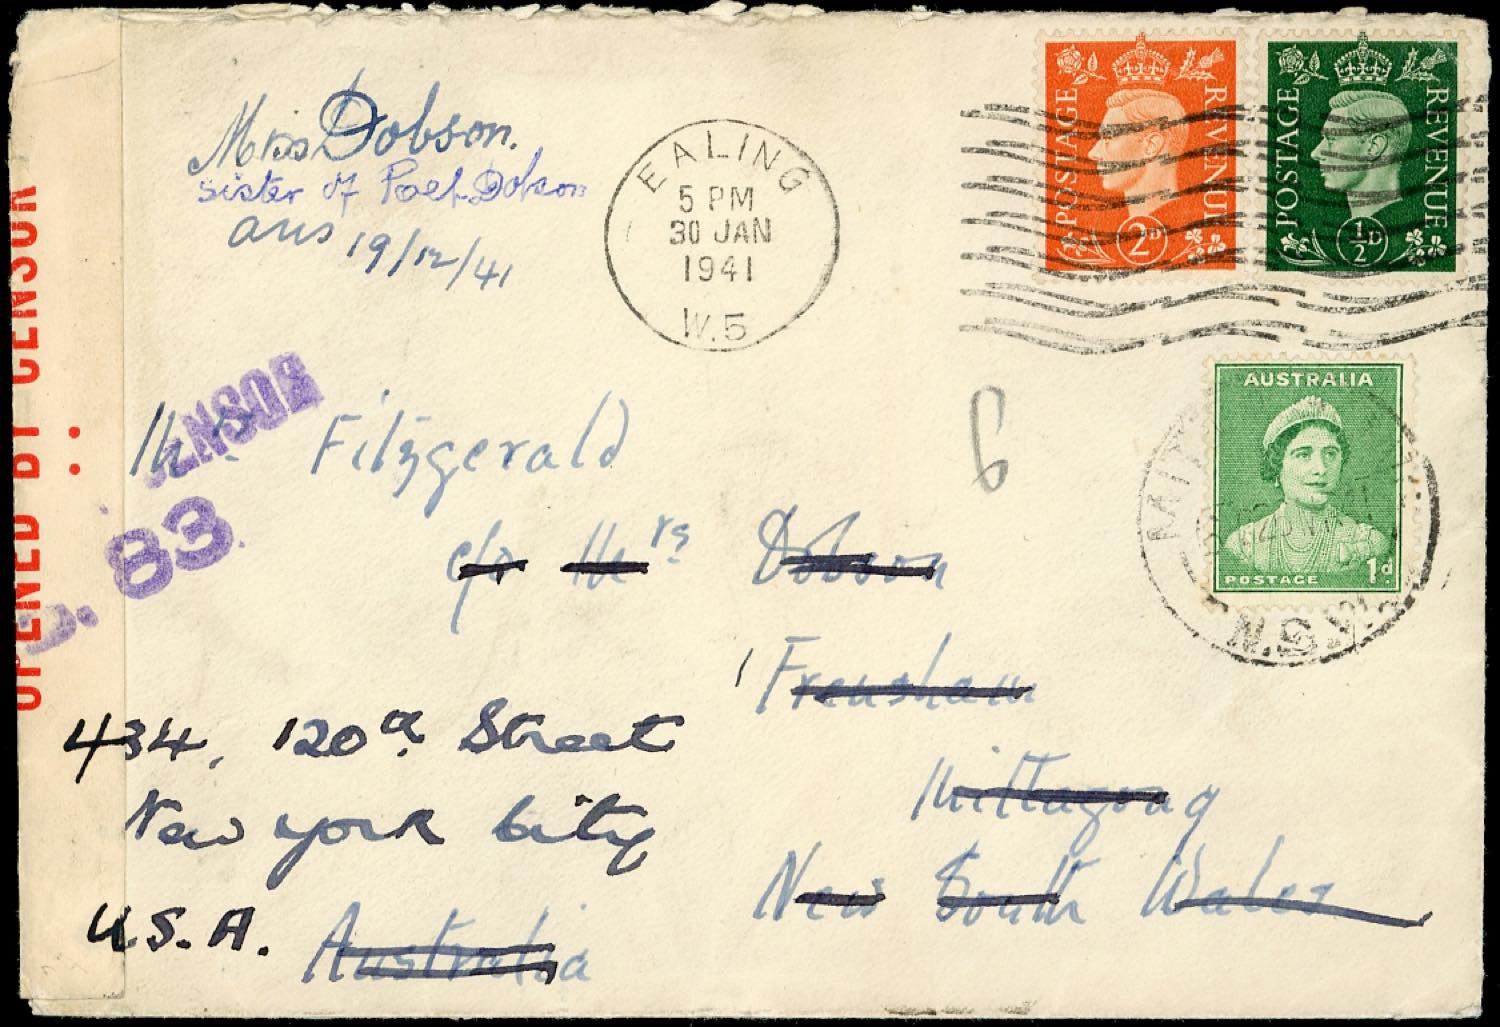 Miss Dobson.
sister of Poet Dobson
ans 19/12/41
EALING
5 PM
30 JAN
1941
W.5
POSTAGE REVENUE
2D
POSTAGE REVENUE
½D
OPENED BY CENSOR
CENSOR
83
6
Fitzgerald
c/o Mrs Dobson
Frensham
Mittagong
New South Wales
Australia
434, 120th Street
New York City
U.S.A.
AUSTRALIA
POSTAGE 1d
N.S.W.